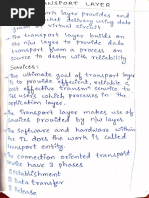 TRANSPORT LAYER
layer provides end
packet delivery using data
or virtual circuits
The transport layer builds on
the n/w layer to provide data
transport from a process on
source to destn with reliability
Services:-
The ultimate goal of transport layer
to provide efficient, reliable &
cost effective transmn service to
its users which processes in the
application layer.
The transport layer makes use of
services provided by n/w layer
The Software and hardware within
the TL does the work is called
transport entity.
The connection oriented transport
service have 3 phases
Establishment
Data transfer
Release